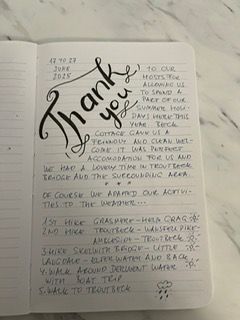 17 TO 27
JUNE
2025
Thank
you
TO OUR
HOSTS FOR
ALLOWING US
TO SPEND A
PART OF OUR
SUMMER HOLI-
DAYS HERE THIS
YEAR. BECK
COTTAGE GAVE US A
FRIENDLY AND CLEAN WEL-
COME. IT WAS PERFECT
ACCOMODATION FOR US AND
WE HAD A LOVELY TIME IN TROUTBECK
BRIDGE AND THE SURROUNDING AREA.
* * *
OF COURSE WE ADAPTED OUR ACTIVI-
TIES TO THE WEATHER...
1ST HIKE GRASMERE - HELM CRAG
2ND HIKE TROUTBECK - WANSFELL PIKE -
AMBLESIDE - TROUTBECK
3. HIKE SKELWITH BRIDGE - LITTLE
LANGDALE - ELTERWATER AND BACK
4. WALK AROUND DERWENT WATER
WITH BOAT TRIP
5. WALK TO TROUTBECK